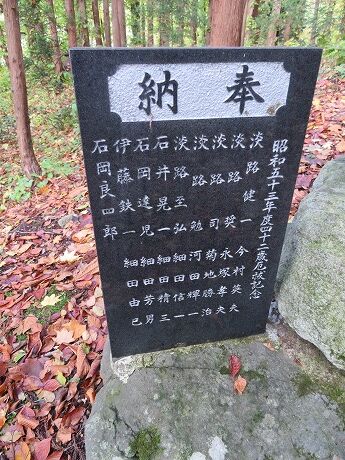 奉納
昭和五十三年度四十二歳厄祓記念
淡路健一
淡路奨
淡路司
淡路勉
淡路至弘
石井晃一
石岡達児
伊藤鉄一
石岡良四郎
今村英夫
永塚孝夫
菊地勝治
河田輝一
細田信一
細田精三
細田芳男
細田由己